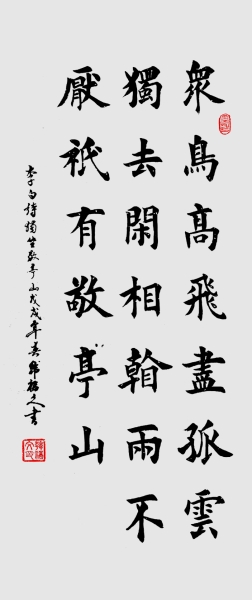 眾鳥高飛盡孤雲
獨去閑相看兩不
厭衹有敬亭山
李白詩獨坐敬亭山戊戌年春